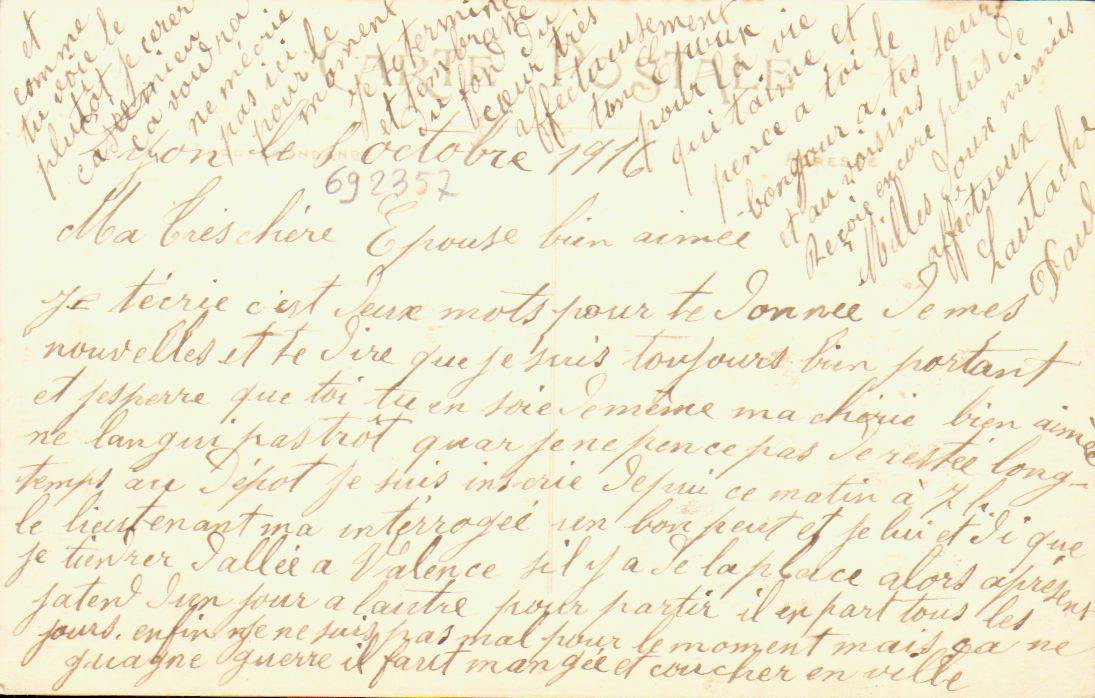 CARTE POSTALE
CORRESPONDANCE
ADRESSE
Lyon le 6 octobre 1916
692357
Ma trés chére Epouse bien aimee
Je técrie c'est deux mots pour te donnee de mes
nouvelles et te dire que je suis toujours bien portant
et jesperre que toi tu en soie de même ma chérie bien aimée
ne langui pas trot quar je ne pence pas de restée long-
temps au Dépot je suis inscrie depui ce matin à 7 h
le lieutenant ma intérrogeé un bon peut et je lui et di que
je tiendrer dallée a Valence sil y a de la place alors aprésent
jatend dun jour a lautre pour partir il en part tous les
jours. enfin je ne suis pas mal pour le moment mais ça ne
guagne guerre il faut mangée et coucher en ville
et
comme
tu voie le
plutot je cerer
ça vou dra
ne mécrie
pas ici
pour le
moment
Je termine
et tembrasse
du fon du
cœur trés
affectueusement
ton Epoux
pour la vie
qui taime et
pence a toi le
bongour a tes sœurs
et au voisins
Reçoie encore plus de
Milles doux mimis
affectueux
Paul